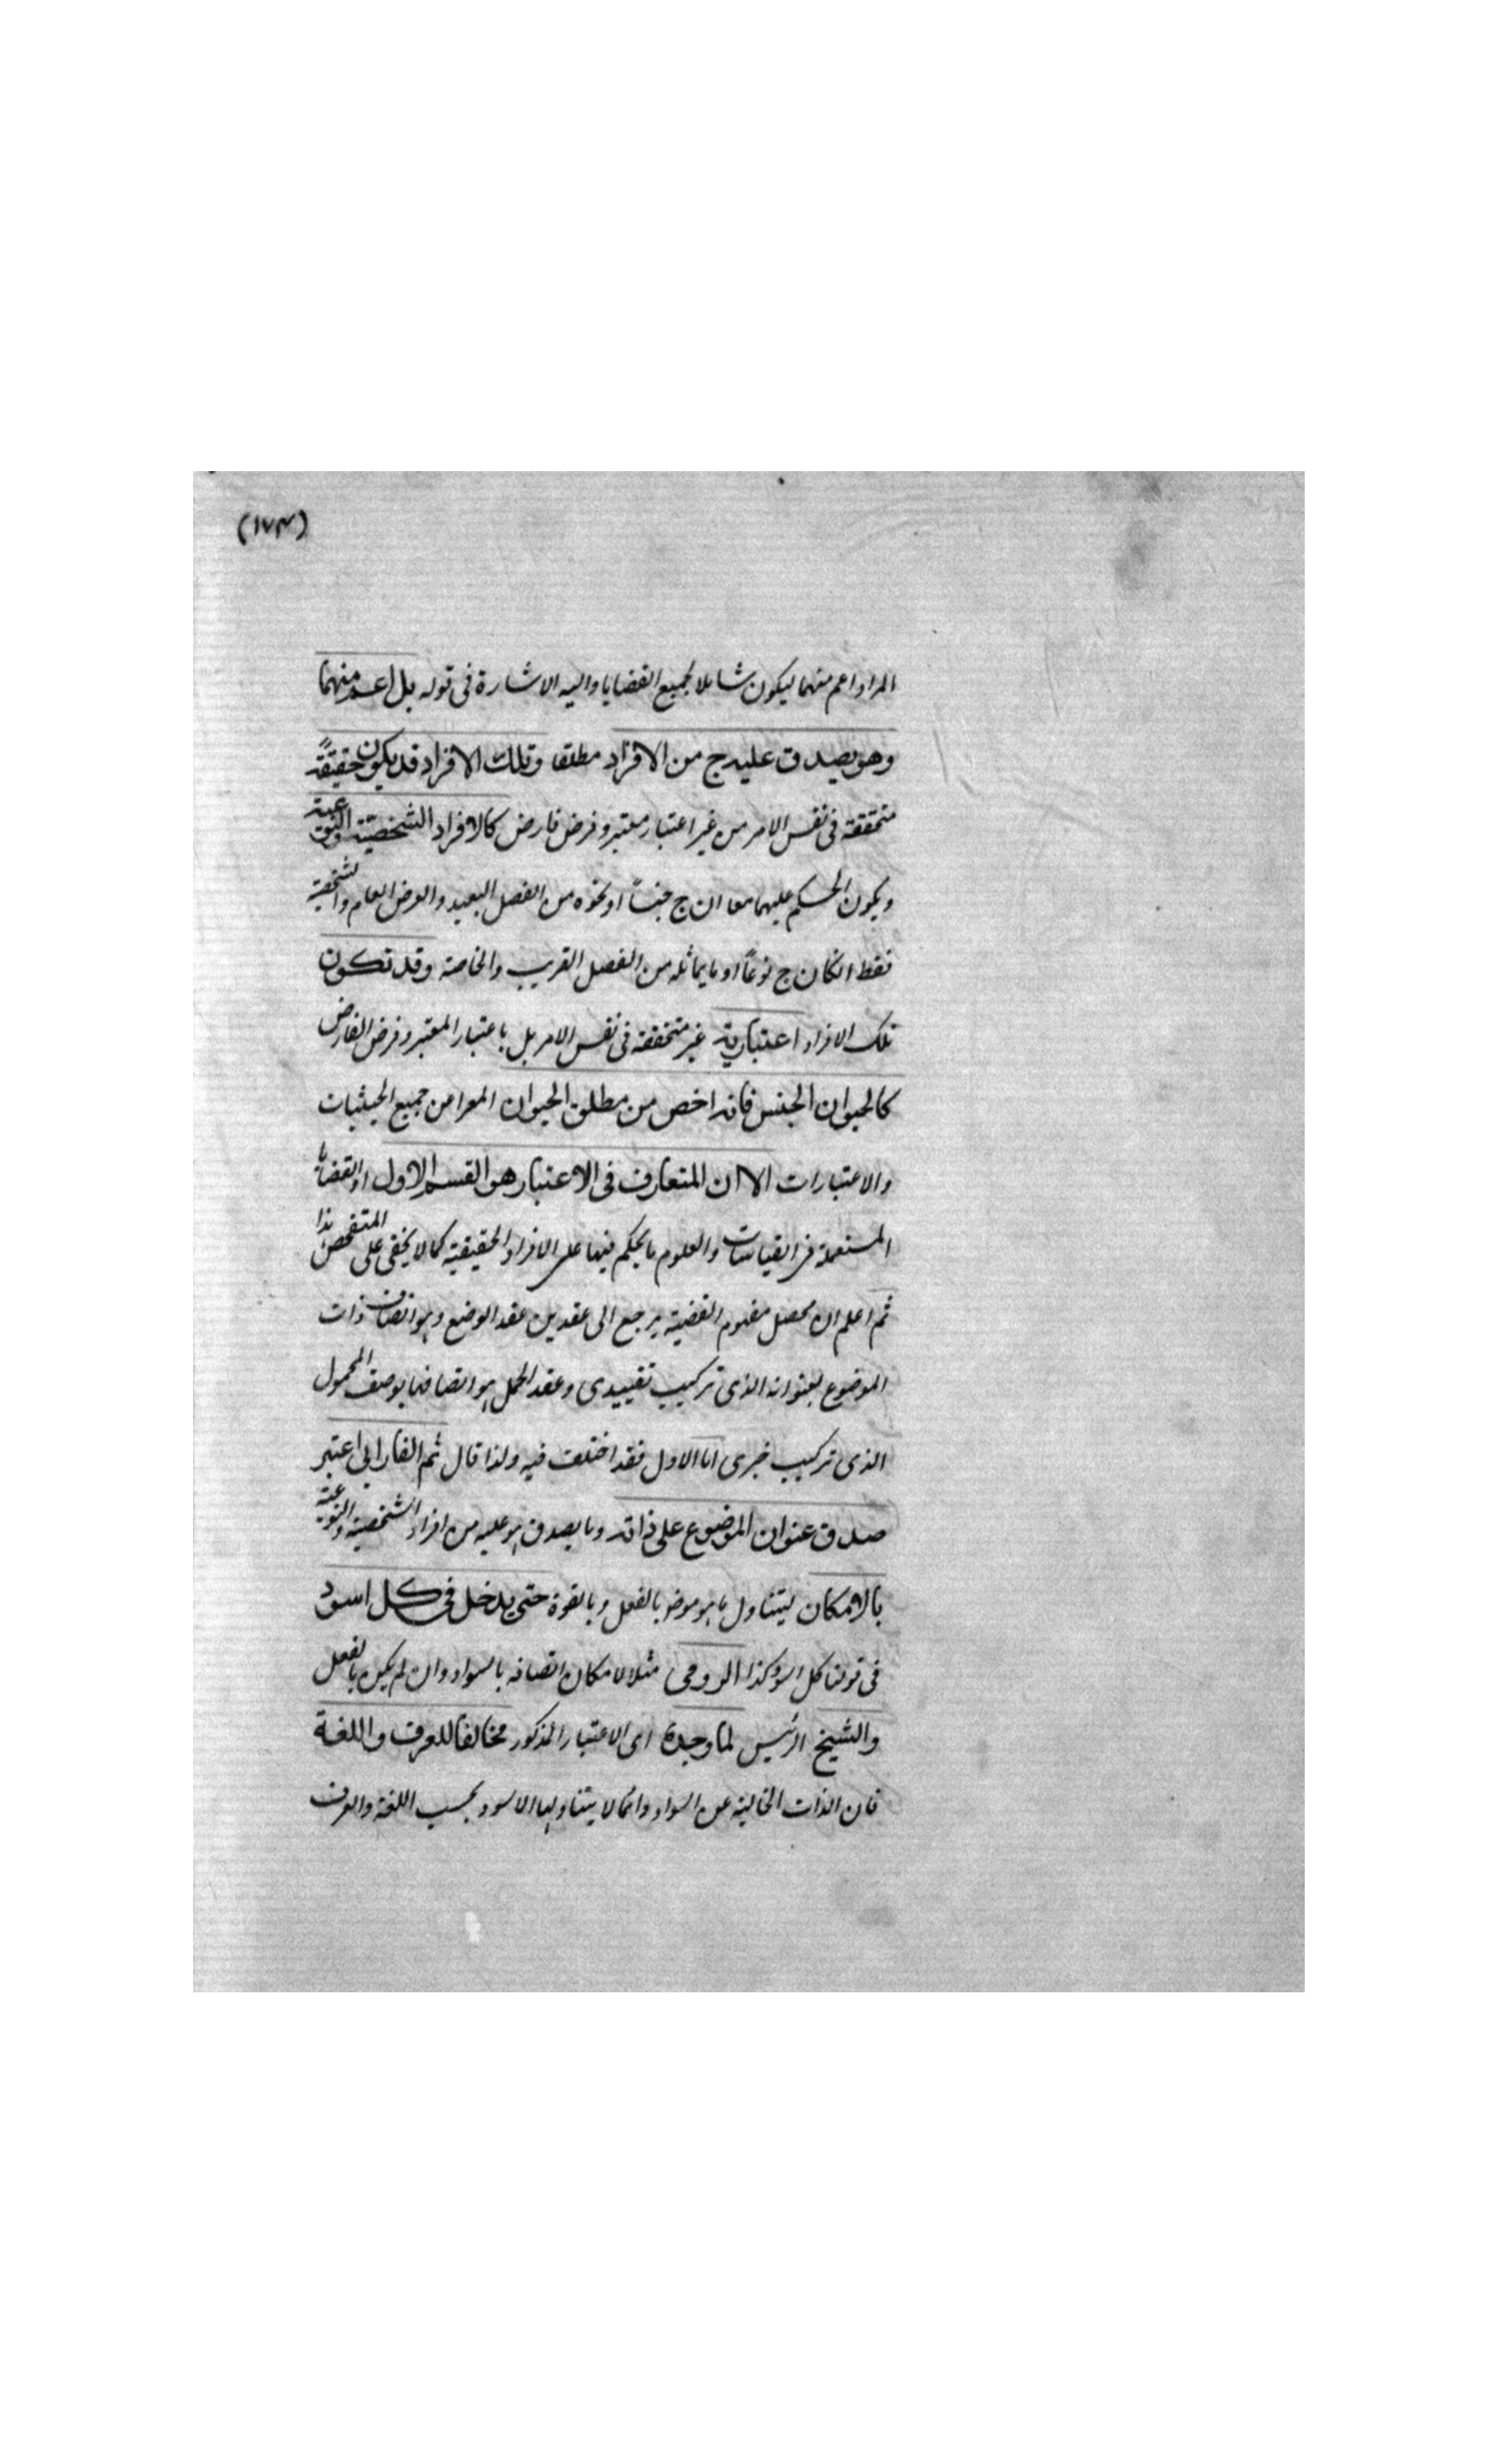 (١٧٣)
المراد اعم منهما ليكون شاملا لجميع القضايا واليه الاشارة فى قوله بل اعم منهما
وهو يصدق عليه ج من الافراد مطلقا وتلك الافراد قد يكون حقيقةً
متحققة فى نفس الامر من غير اعتبار معتبر وفرض فارض كالافراد الشخصيّة والنوعية
ويكون الحكم عليهما معا ان ج جنساً او نحوه من الفصل البعيد والعرض العام والشخصية
فقط انكان ج نوعاً او ما يماثله من الفصل القريب والخاصة وقد تكون
تلك الافراد اعتبارية غير متحققة فى نفس الامر بل باعتبار المعتبر وفرض الفارض
كالحيوان الجنس فانه اخص من مطلق الحيوان المعرا من جميع الحيثيات
والاعتبارات الا ان المتعارف فى الاعتبار هو القسم الاول اذ القضايا
المستعملة فى القياسات والعلوم ما يحكم فيها على الافراد الحقيقية كما لا يخفى على المتفحص هذا
ثم اعلم ان محصل مفهوم القضية يرجع الى عقدين عقد الوضع وهو اتصاف ذات
الموضوع بعنوانه الذى تركيب تقييدى وعقد الحمل هو اتصافها بوصف المحمول
الذى تركيب خبرى اما الاول فقد اختلف فيه ولذا قال ثم الفارابى اعتبر
صدق عنوان الموضوع على ذاته وما يصدق هو عليه من افراد الشخصية والنوعية
بالامكان ليتناول ما هو موضو بالفعل وبالقوة حتى يدخل فى كل اسود
فى قولنا كل اسود كذا الرومى مثلا لامكان اتصافه بالسواد وان لم يكن بالفعل
والشيخ الرئيس لما وجده اى الاعتبار المذكور مخالفا للعرف واللغة
فان الذات الخالية عن السواد دائما لا يتناولها الاسود بحسب اللغة والعرف